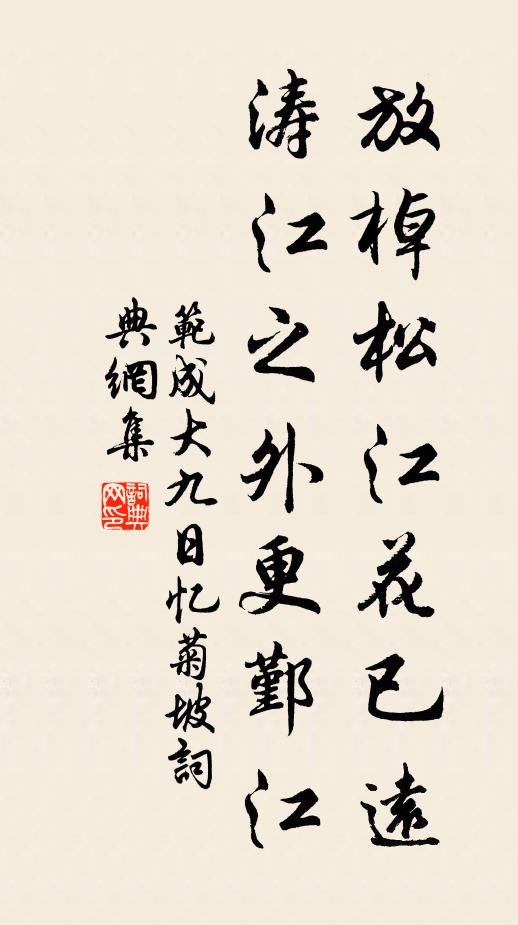 放棹松江花已遠
濤江之外更鄞江
範成大九日忆菊坡詞
典網集
詞典
网印